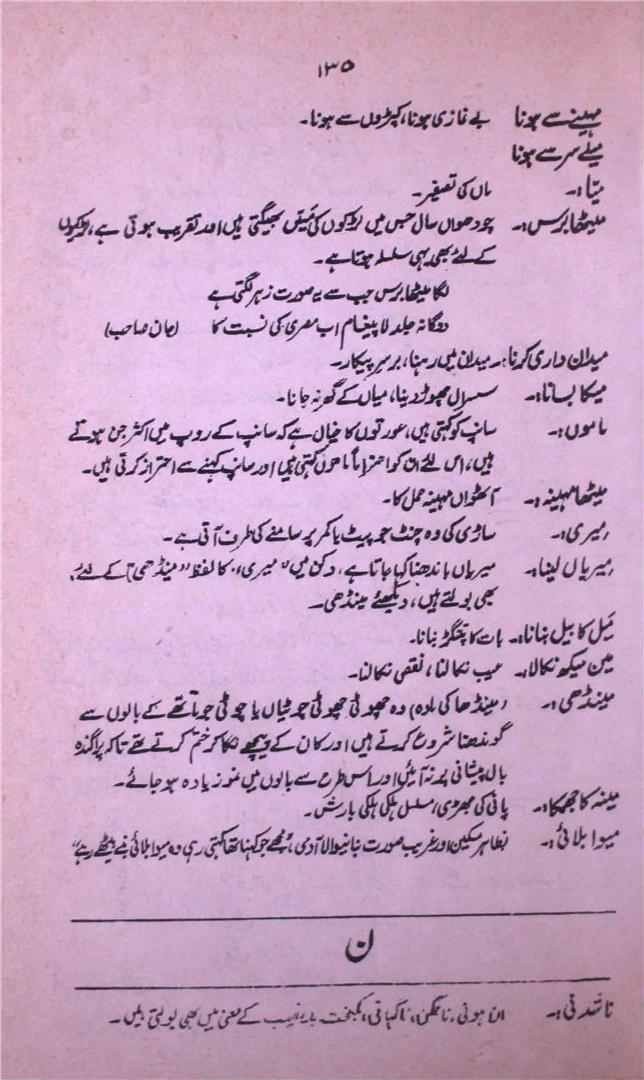 ۱۳۵
مہینے سے ہونا بے نمازی ہونا، کپڑوں سے ہونا۔
میلے سر سے ہونا
میّا:۔ ماں کی تصغیر۔
میٹھا برس:۔ چودھواں سال جس میں لڑکوں کی مَیسّں بھیگتی ہیں اور تقریب ہوتی ہے، لڑکیوں
کے لئے بھی یہی سلسلہ ہوتا ہے۔
لگا میٹھا برس جب سے یہ صورت زہر لگتی ہے
دوگانہ جلد لا پیغام اب مصری کی نسبت کا (جان صاحب)
میدان داری کرنا:۔ میدان میں رہنا، برسرِ پیکار۔
میکا بسانا:۔ سسرال چھوڑ دینا، میاں کے گھر نہ جانا۔
ماموں:۔ سانپ کو کہتی ہیں، عورتوں کا خیال ہے کہ سانپ کے روپ میں اکثر جن ہوتے
ہیں، اس لئے ان کو احتراماً ماموں کہتی ہیں اور سانپ کہنے سے احتراز کرتی ہیں۔
میٹھا مہینہ:۔ آٹھواں مہینہ حمل کا۔
میری:۔ ساڑی کی وہ چنٹ جو پیٹ یا کمر پر سامنے کی طرف آتی ہے۔
میریاں لینا:۔ میریاں باندھنا کہا جاتا ہے، دکن میں "میری" کا لفظ "مینڈھی" کے لئے
بھی بولتے ہیں، دیکھئے مینڈھی۔
میَل کا بیل بنانا:۔ بات کا بتنگڑ بنانا۔
مین میکھ نکالا:۔ عیب نکالنا، نقص نکالنا۔
مینڈھی:۔ (مینڈھا کی مادہ) وہ چھوٹی چھوٹی چوٹیاں یا چوٹی جو ماتھے کے بالوں سے
گوندھنا شروع کرتے ہیں اور کان کے پیچھے نکا کر ختم کرتے تھے تاکہ پراگندہ
بال پیشانی پر نہ آئیں اور اس طرح سے بالوں میں نمو زیادہ ہو جائے۔
مینہ کا جھمکا:۔ پانی کی جھڑی، مسلسل ہلکی ہلکی بارش۔
میوا بلائی:۔ بظاہر مسکین اور غریب صورت بنانیوالا آدمی، "مجھے جو کہنا تھا کہتی رہی وہ میوا بلائی بنے بیٹھے رہے"
ن
ناشدنی:۔ ان ہونی، ناممکن، ناگہانی، کمبخت، بدنصیب کے معنی میں بھی بولتی ہیں۔